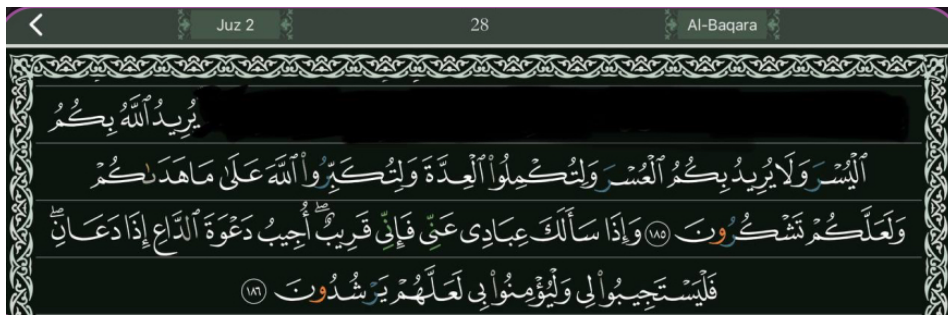 Juz 2 28 Al-Baqara
يُرِيدُ ٱللَّهُ بِكُمُ
ٱلْيُسْرَ وَلَا يُرِيدُ بِكُمُ ٱلْعُسْرَ وَلِتُكْمِلُوا۟ ٱلْعِدَّةَ وَلِتُكَبِّرُوا۟ ٱللَّهَ عَلَىٰ مَا هَدَىٰكُمْ
وَلَعَلَّكُمْ تَشْكُرُونَ ١٨٥ وَإِذَا سَأَلَكَ عِبَادِى عَنِّى فَإِنِّى قَرِيبٌ ۖ أُجِيبُ دَعْوَةَ ٱلدَّاعِ إِذَا دَعَانِ ۖ
فَلْيَسْتَجِيبُوا۟ لِى وَلْيُؤْمِنُوا۟ بِى لَعَلَّهُمْ يَرْشُدُونَ ١٨٦